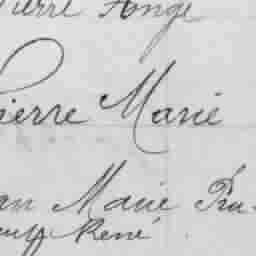 Pierre Ange
Pierre Marie
an Marie Pru-
René